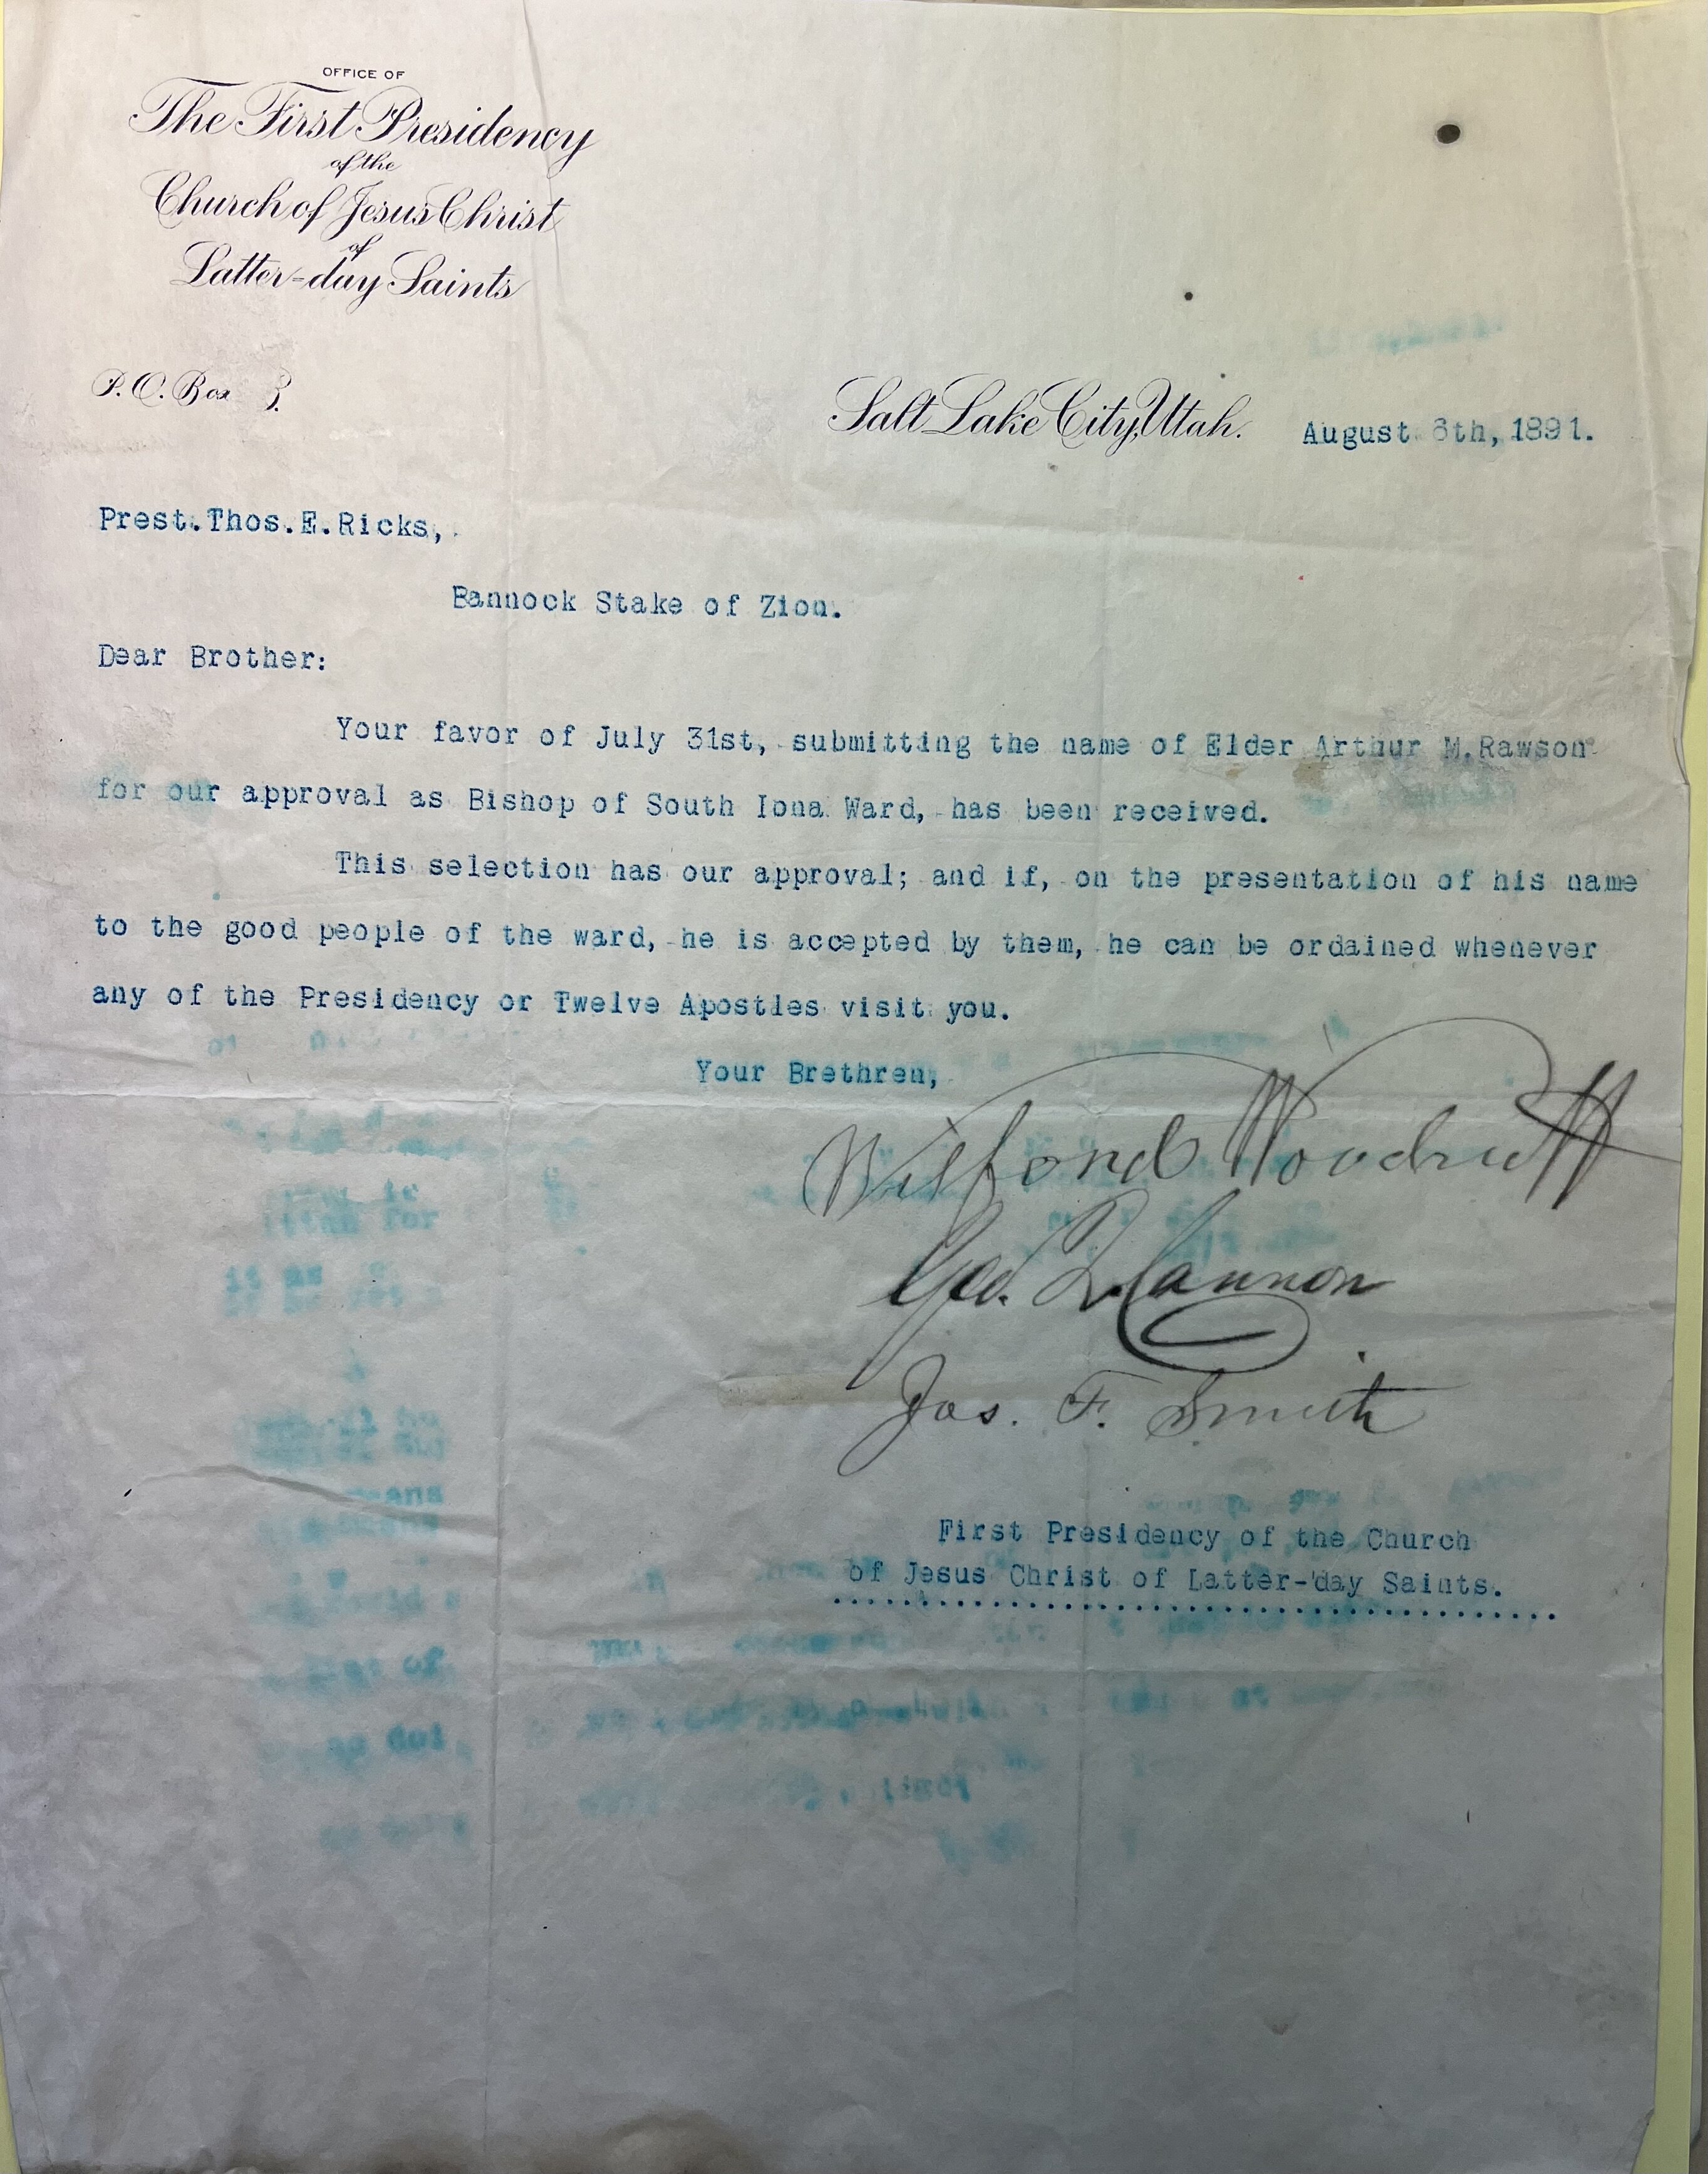 OFFICE OF
The First Presidency
of the
Church of Jesus Christ
of
Latter-day Saints
P.O. Box B.
Salt Lake City, Utah. August 6th, 1891.
Prest. Thos. E. Ricks,
Bannock Stake of Zion.
Dear Brother:
Your favor of July 31st, submitting the name of Elder Arthur M. Rawson
for our approval as Bishop of South Iona Ward, has been received.
This selection has our approval; and if, on the presentation of his name
to the good people of the ward, he is accepted by them, he can be ordained whenever
any of the Presidency or Twelve Apostles visit you.
Your Brethren,
Wilford Woodruff
Geo. Q. Cannon
Jos. F. Smith
First Presidency of the Church
of Jesus Christ of Latter-day Saints.